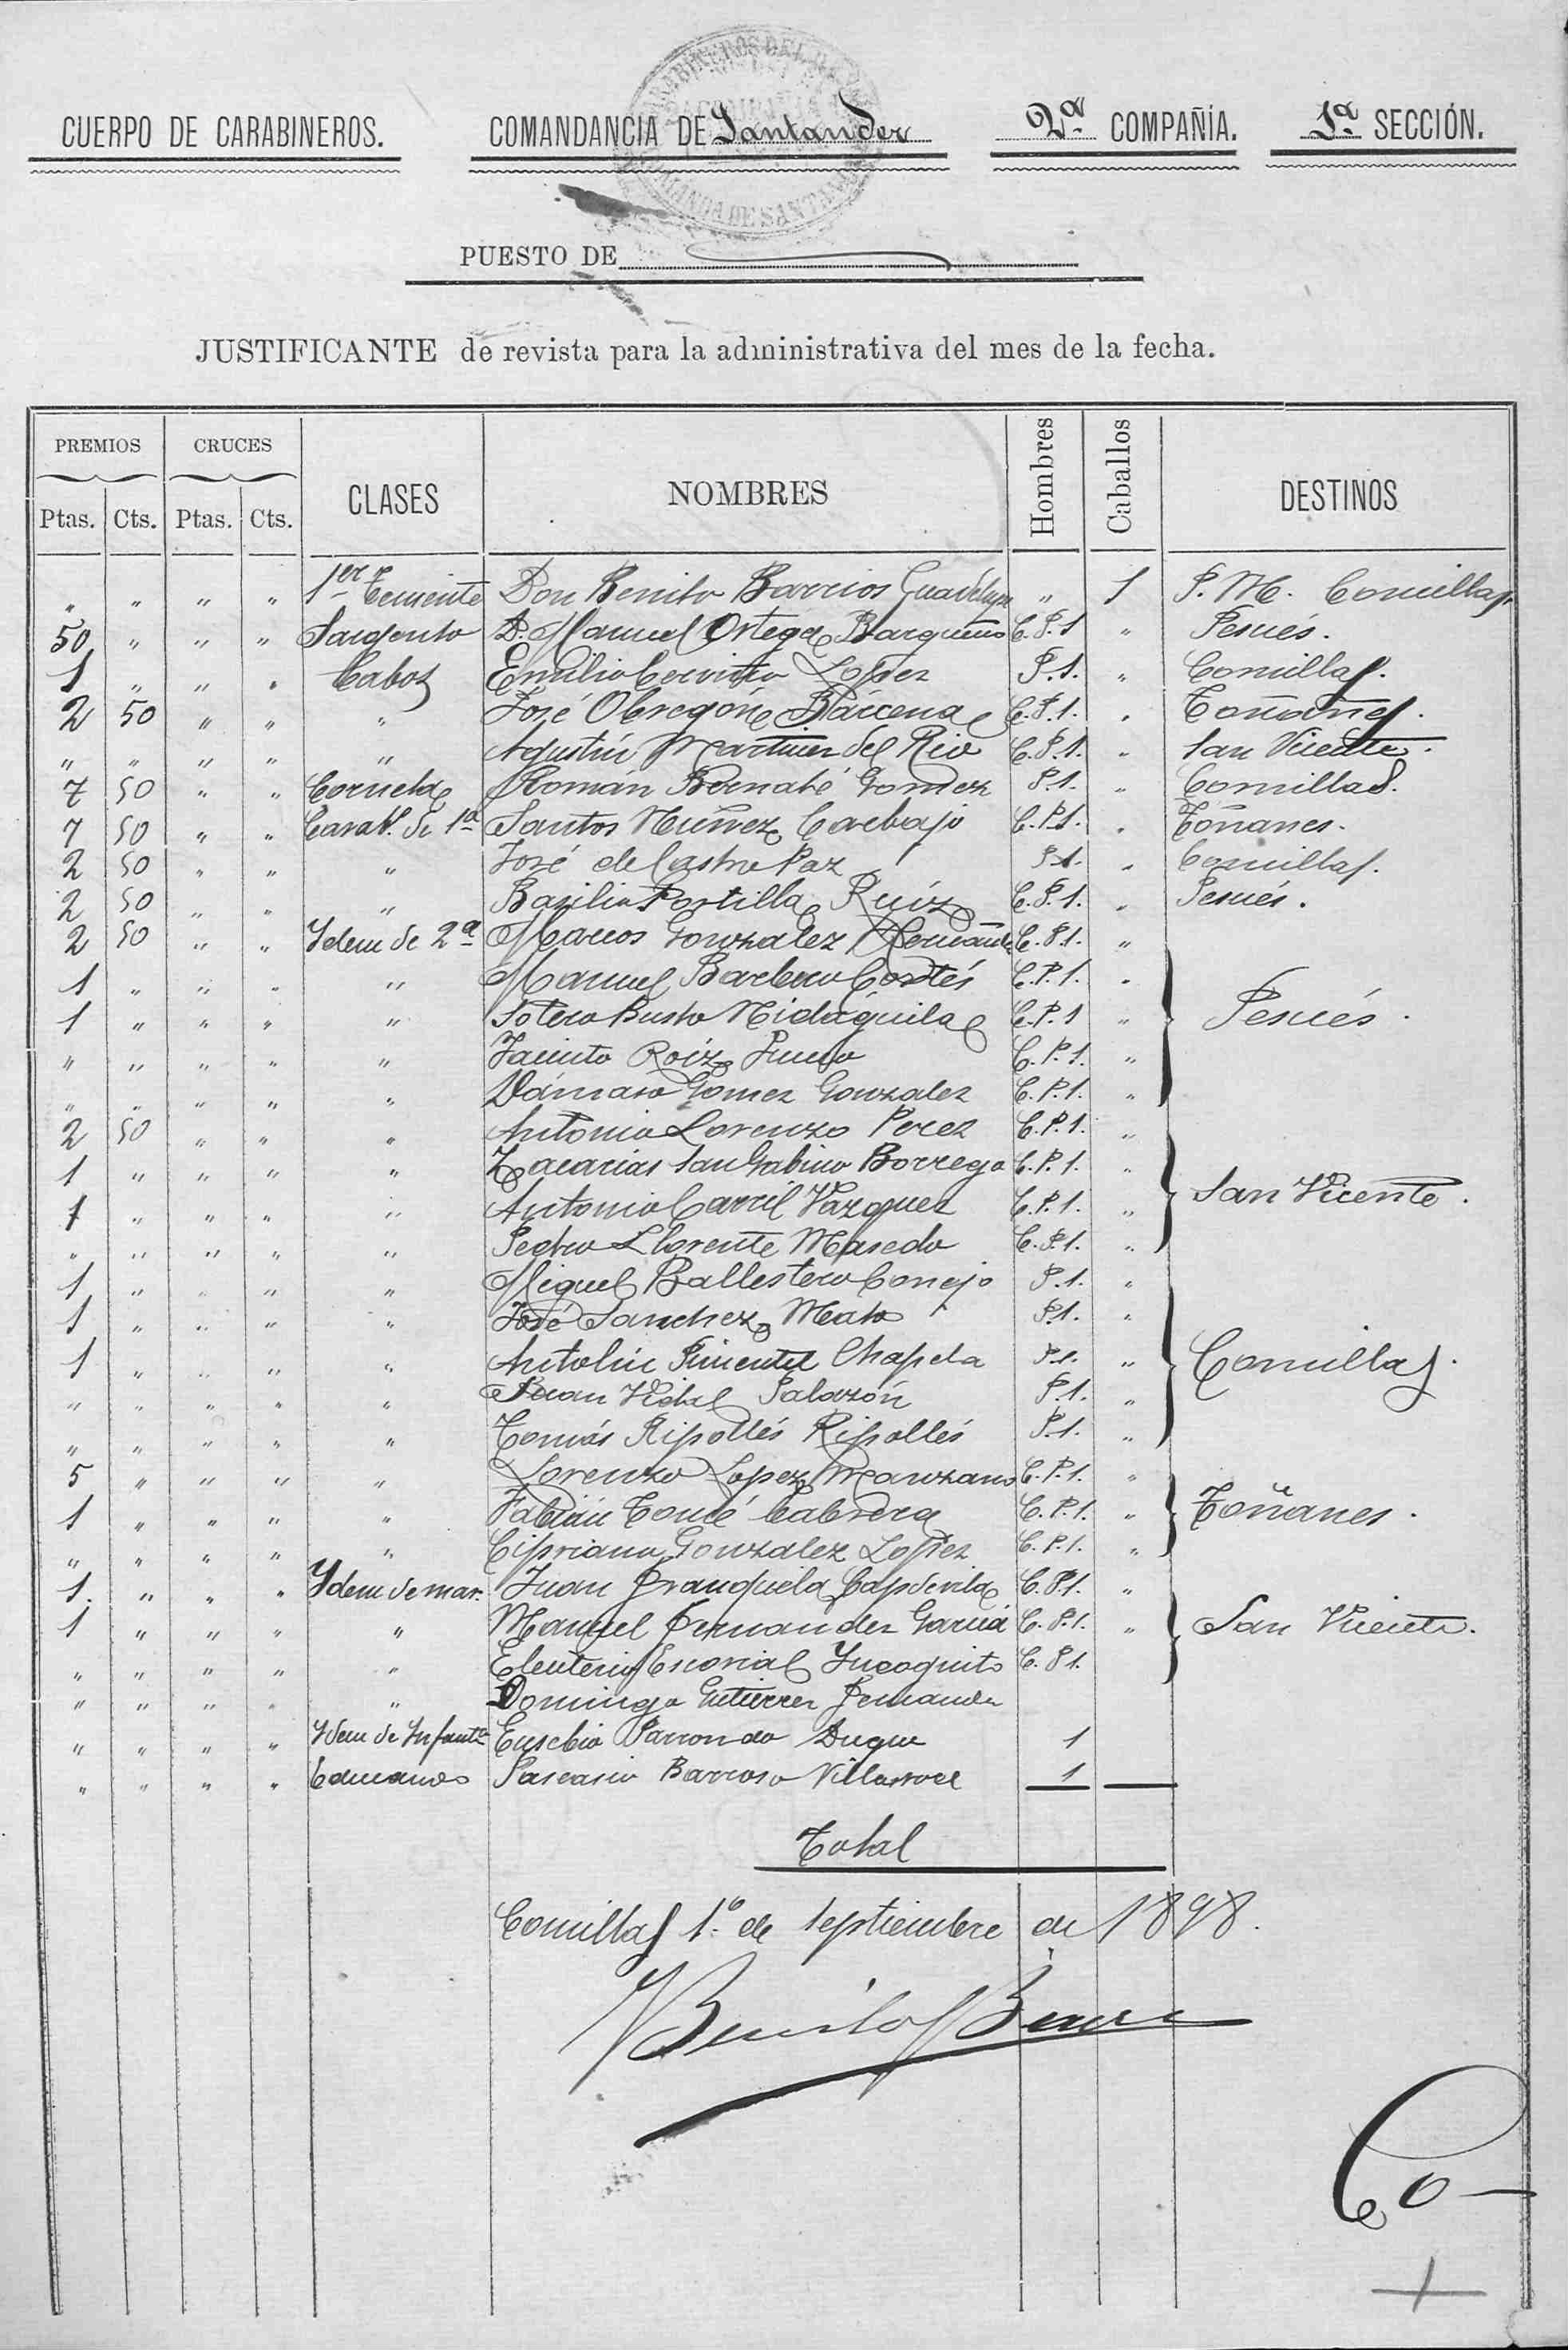 CUERPO DE CARABINEROS. COMANDANCIA DE Santander 2ª COMPAÑÍA. 1ª SECCIÓN.
PUESTO DE
JUSTIFICANTE de revista para la administrativa del mes de la fecha.
PREMIOS CRUCES CLASES NOMBRES Hombres Caballos DESTINOS
Ptas. Cts. Ptas. Cts.
" " " " 1er Teniente Don Benito Barrios Guadalupe " 1 P. M. Comillas.
50 " " " Sargento D. Manuel Ortega Bargueño C. P. 1 " Pesués.
1 " " " Cabos Emilio López P. 1. " Comillas.
2 50 " " " José Obregón Bárcena C. P. 1. " Toñanes.
" " " " " Agustín Martinez del Rio C. P. 1. " San Vicente.
7 50 " " Corneta Román Bernabé Gomez P. 1. " Comillas.
7 50 " " Carab. de 1ª Santos Nuñez Carbajo C. P. 1. " Toñanes.
2 50 " " " José de Castro Paz P. 1. " Comillas.
2 50 " " " Basilio Portilla Ruíz C. P. 1. " Pesués.
2 50 " " Ydem de 2ª Marcos Gonzalez C. P. 1. "
1 " " " " Manuel Barbero Cortés C. P. 1. "
1 " " " " Sotero Busto Nidáguila C. P. 1 " Pesués.
" " " " " Jacinto Roiz C. P. 1. "
" " " " " Dámaso Gomez Gonzalez C. P. 1. "
2 50 " " " Antonio Lorenzo Perez C. P. 1. "
1 " " " " Zacarias San Gabino Borrego C. P. 1. "
1 " " " " Antonio Carril Vazquez C. P. 1. " San Vicente.
" " " " " Pedro Llorente Masedo C. P. 1. "
1 " " " " Miguel Ballestero Conejo P. 1. "
1 " " " " José Sanchez Mato P. 1. "
1 " " " " Antolin Pimentel Chapela P. 1. " Comillas.
" " " " " Juan Vidal Palazón P. 1. "
" " " " " Tomás Ripollés Ripollés P. 1. "
5 " " " " Lorenzo Lopez Manzano C. P. 1. "
1 " " " " Fabián Tomé Cabrera C. P. 1. " Toñanes.
" " " " " Cipriano Gonzalez Lopez C. P. 1. "
1. " " " Ydem de mar. Juan Franquela Capdevila C. P. 1. "
1 " " " " Manuel Fernandez García C. P. 1. " San Vicente.
" " " " " Eleuterio Escorial Yncognito C. P. 1.
" " " " " Domingo Gutierrez Fernandez
" " " " Ydem de Infantª Eusebio Parrondo Duque 1
" " " " Educandos Pascasio Barroso Villarroel 1
Total
Comillas 1.º de Septiembre de 1898.
Benito Barrios
Co